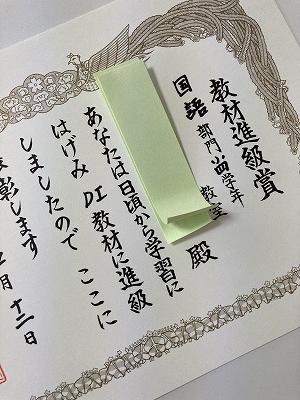 教材進級賞
国語 部門 学年
教室
殿
あなたは日頃から学習に
はげみ DI 教材に進級
しましたので ここに
彰します
月 十二日